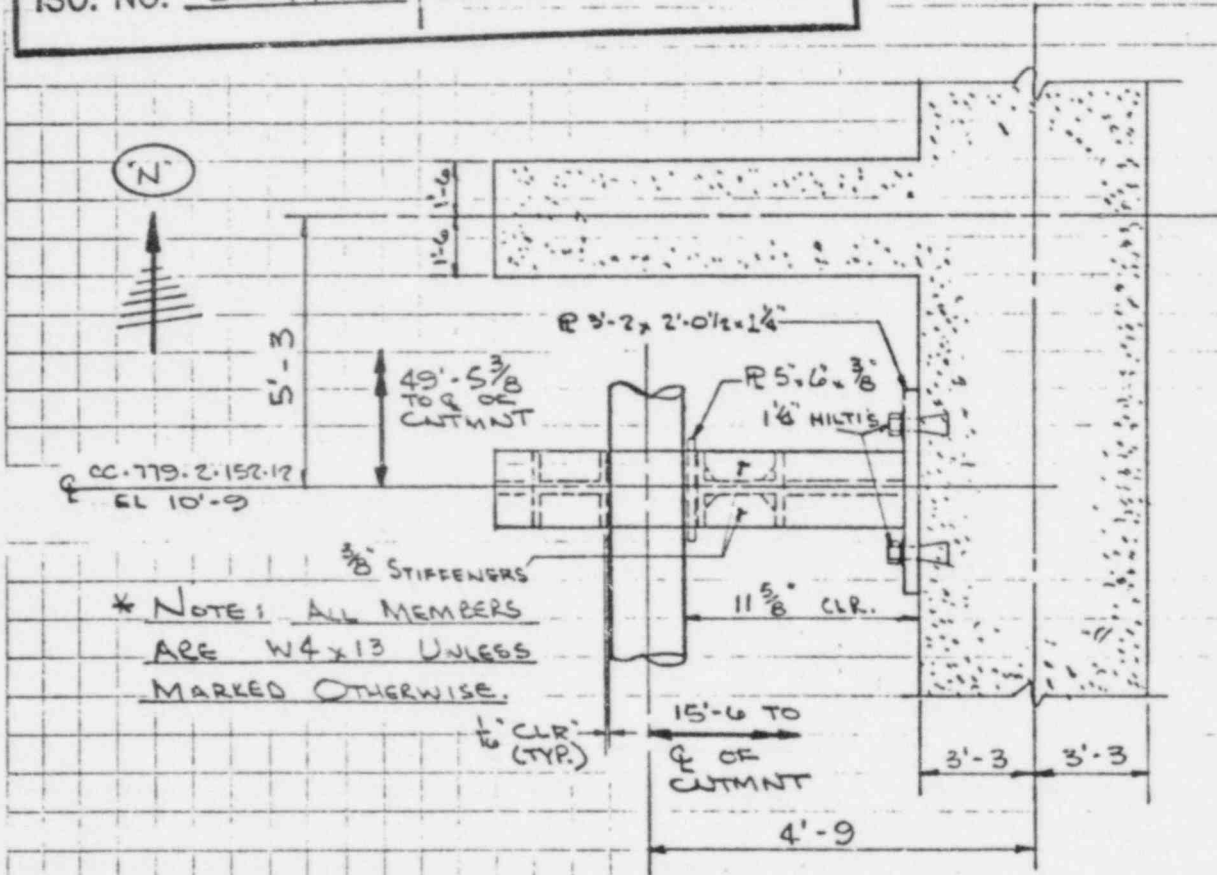 ISO. NO.
"N"
1'-6
1'-6
5'-3
49'-5 3/8
TO ℄ OF
CNTMNT
℄ CC-779-2-152-12
EL 10'-9
℞ 3'-2 x 2'-0 1/2 x 1 1/4"
℞ 5" x 6" x 3/8"
HILTI'S
3/8" STIFFENERS
11 5/8" CLR.
* NOTE: ALL MEMBERS
ARE W4 x 13 UNLESS
MARKED OTHERWISE.
1/16" CLR
(TYP.)
15'-6 TO
℄ OF
CNTMNT
3'-3
3'-3
4'-9